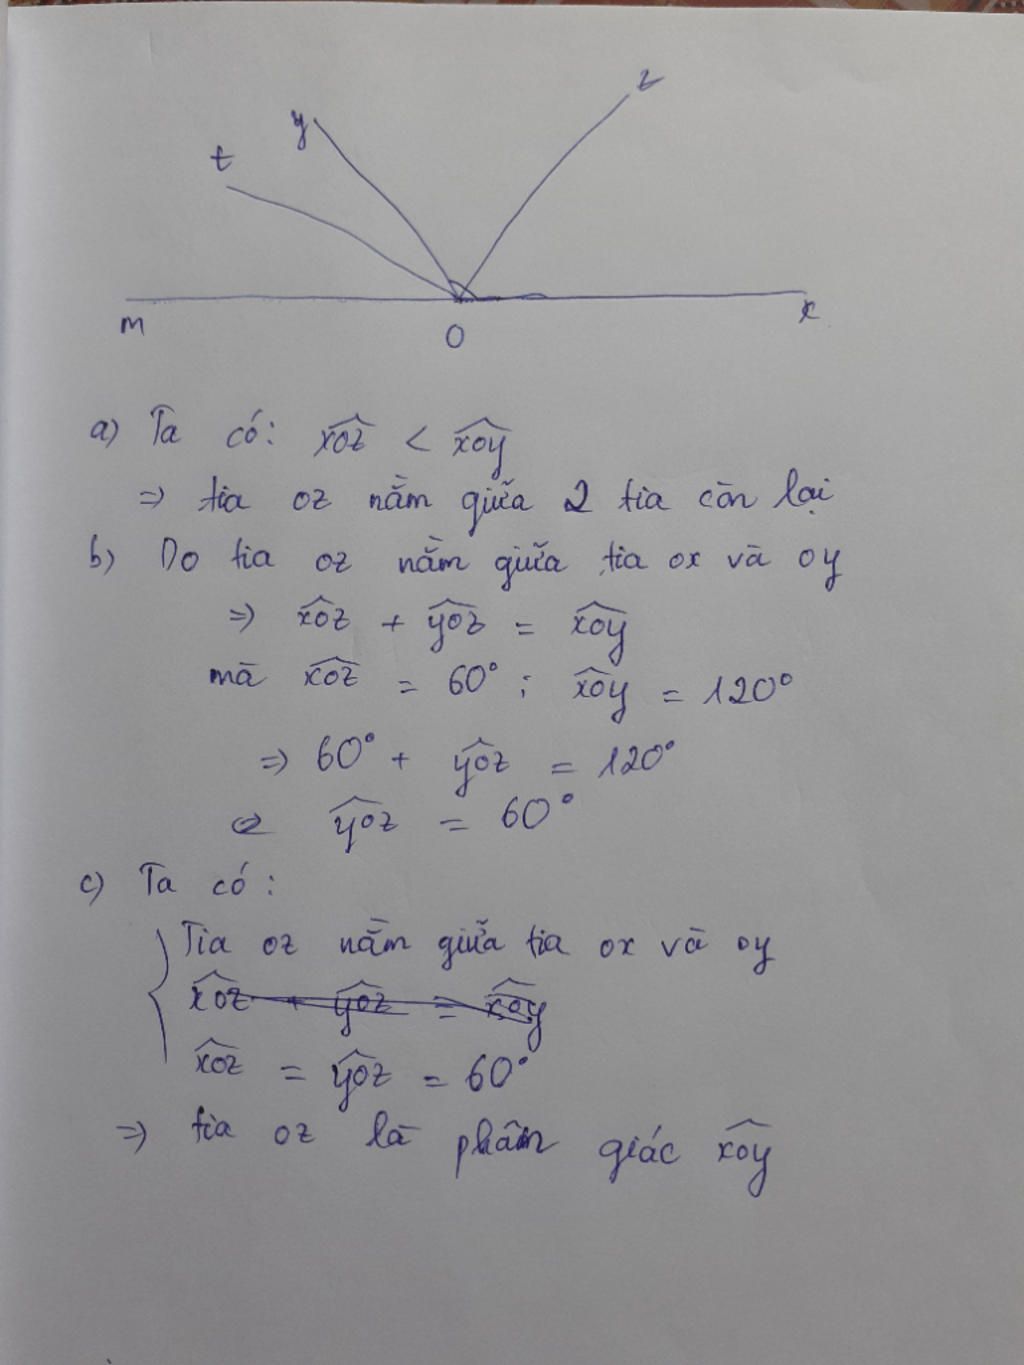 z
y
t
m
O
x
a) Ta có: xOz < xOy
=> tia oz nằm giữa 2 tia còn lại
b) Do tia oz nằm giữa tia ox và oy
=> xoz + yoz = xoy
mà xoz = 60° ; xoy = 120°
=> 60° + yoz = 120°
yoz = 60°
c) Ta có:
Tia oz nằm giữa tia ox và oy
xoz + yoz = xoy
xoz = yoz = 60°
=> tia oz là phân giác xoy